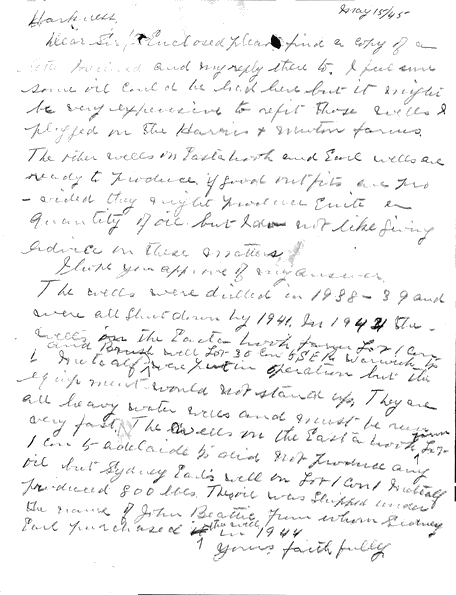 May 15/45
Harkness,
Dear Sir/- Enclosed please find a copy of a
received and my reply there to. I feel sure
some oil could be had here but it might
be very expensive to refit those wells I
plugged on the Harris & Newton farms.
The other wells on Easterbrook and Earl wells are
ready to produce, if good outfits are pro
-vided they might produce Quite a
Quantity of oil but I do not like giving
advice on these matters.
I hope you approve of my answer.
The wells were drilled in 1938-39 and
were all shut down by 1941. In 1942 the
wells on the Easterbrook farm Lot 1 Con
1 Metcalf and Brush well Lot 30 Con 6 SER Warwick Tp
were put in operation but the
equipment would not stand up. They are
all heavy water wells and must be run
very fast. The wells on the Easterbrook farm Lot
1 Con 5 adelaide Tp did not produce any
oil but Sydney Earl's well on Lot 1 Con 1 Metcalf
produced 800 bbls. The oil was shipped under
the name of John Beattie from whom Sidney
Earl purchased the well in 1944
Yours faithfully